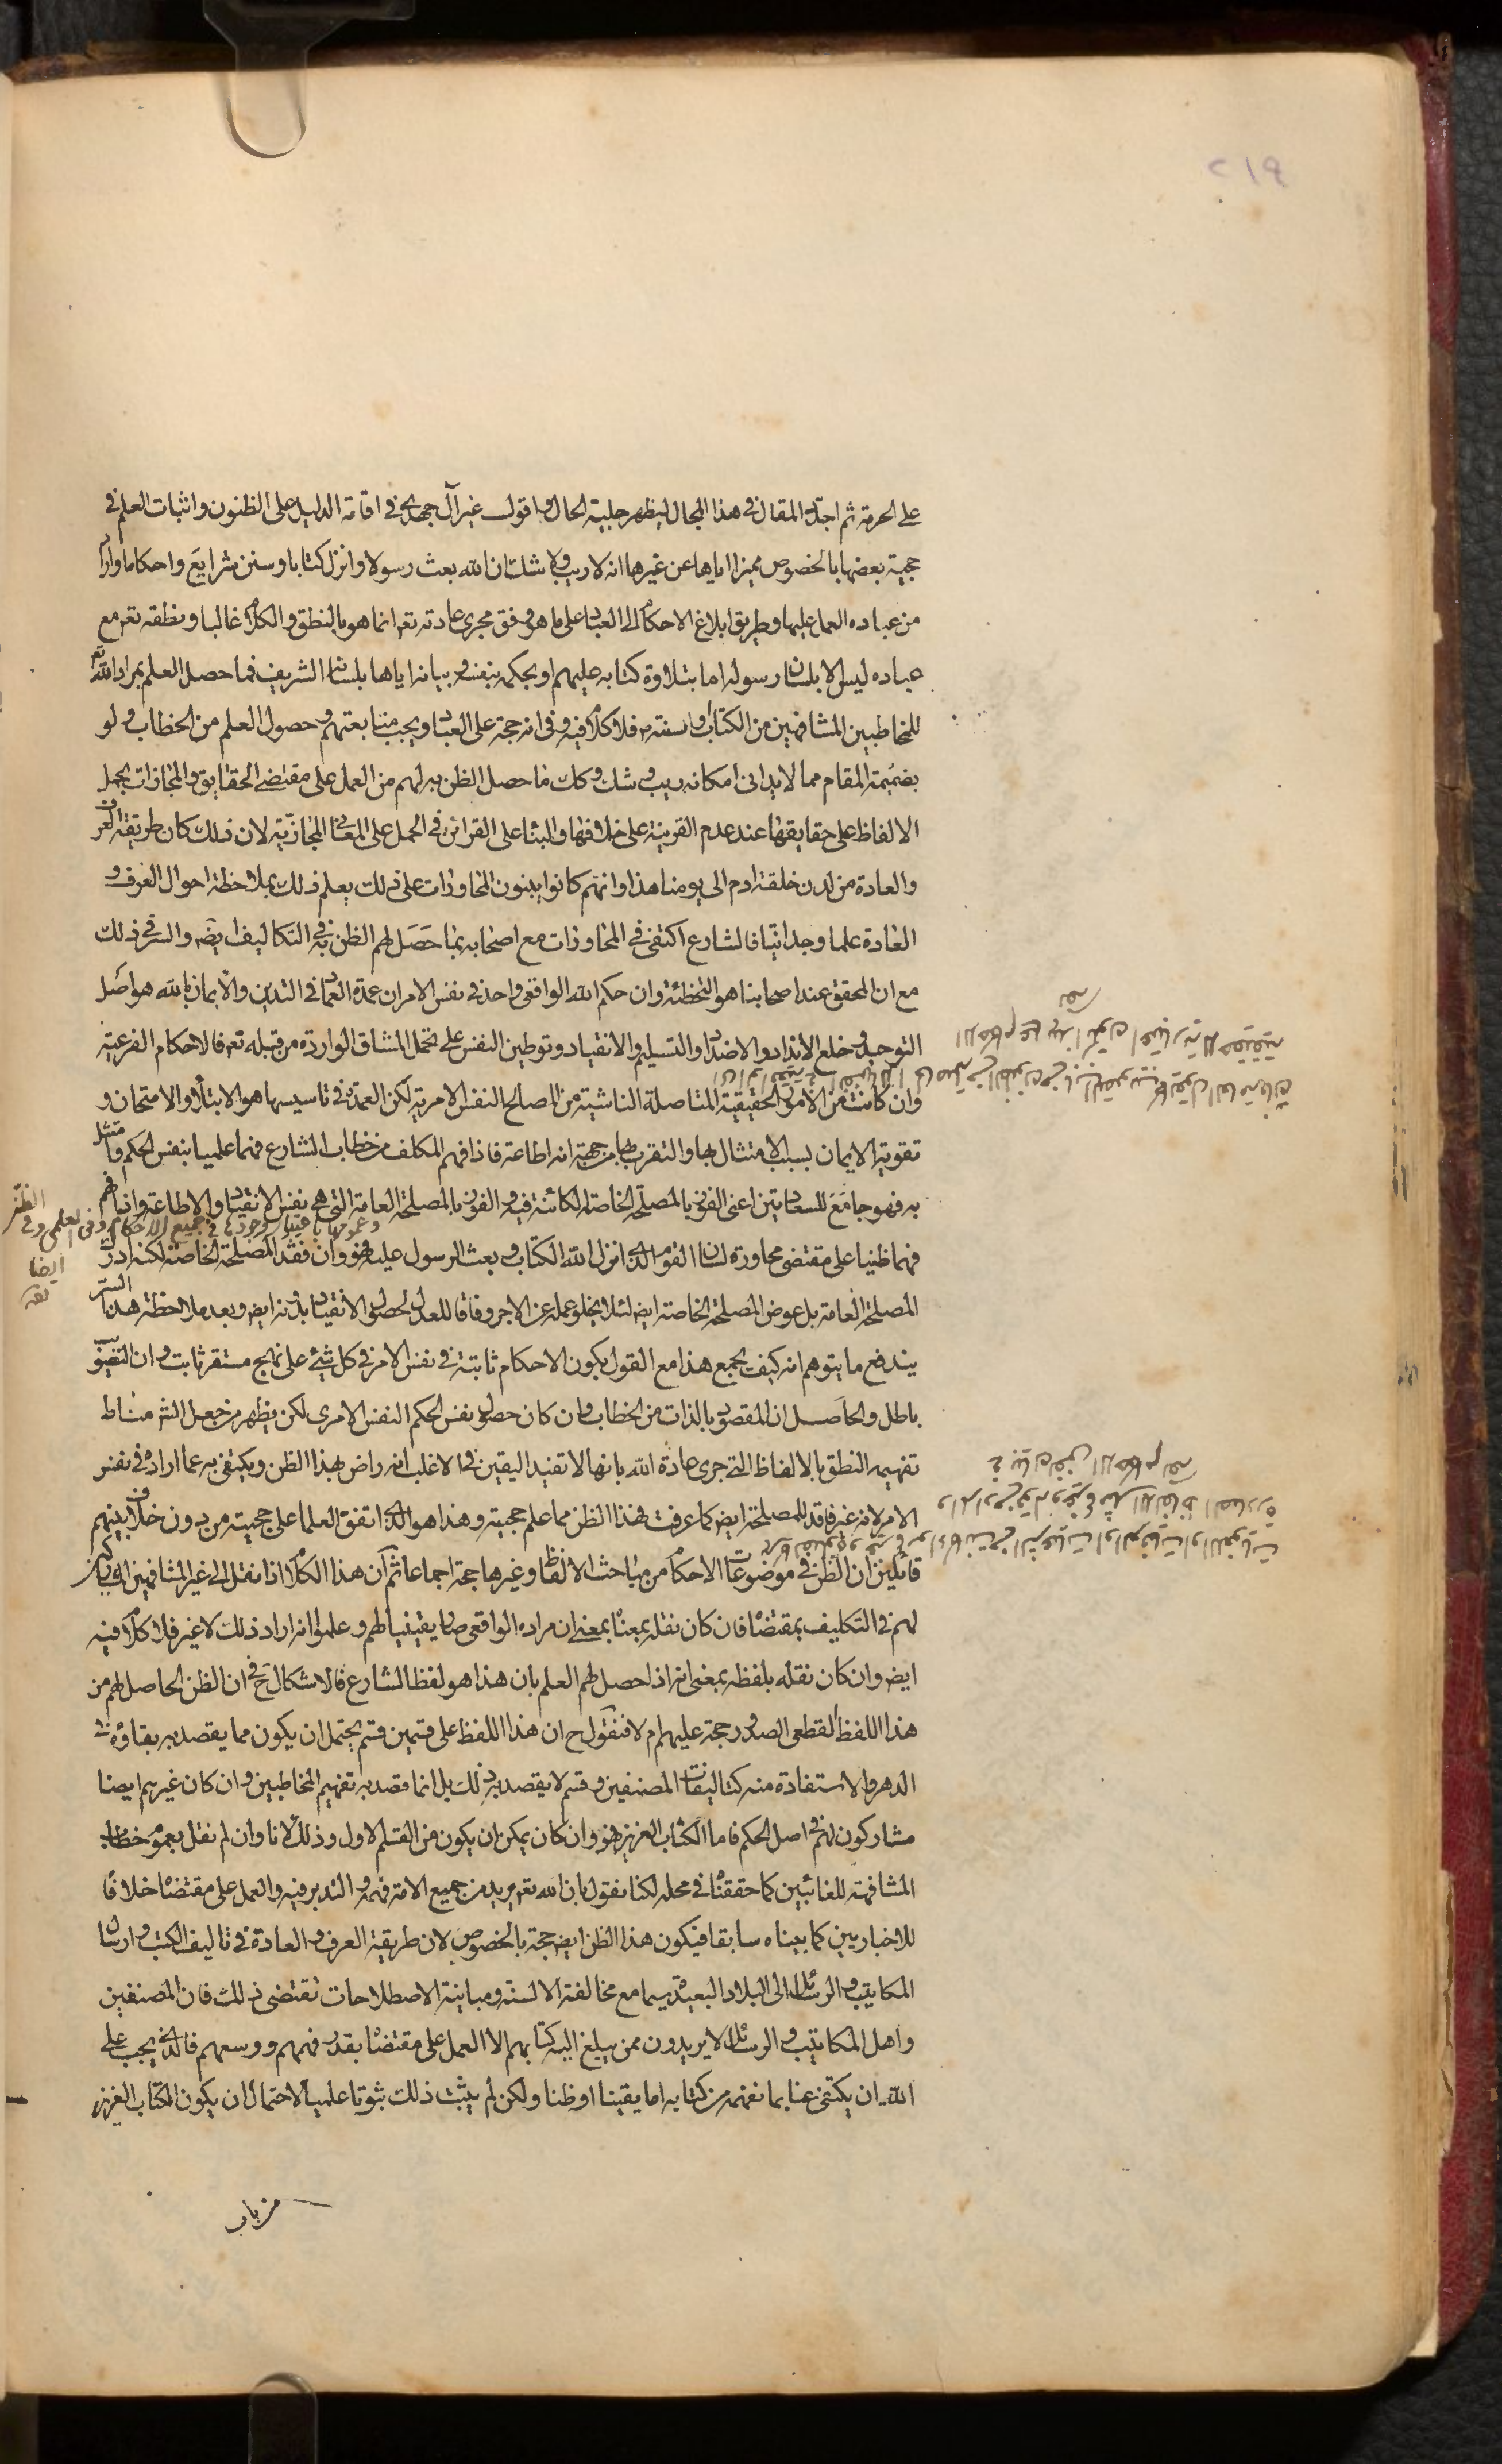 ٢١٩
على الحرمة ثم اجدد المقال في هذا المجال ليظهر جلية الحال واقول غير آل جهدي في اقامة الدليل على الظنون واثبات العلم في
حجية بعضها بالخصوص مميزا اياها عن غيرها انه لا ريب ولا شك ان الله بعث رسولا وانزل كتابا وسنن شرايع واحكاما واراد
من عباده العمل عليها وطريق ابلاغ الاحكام الى العباد على ما هو وفق مجرى عادته تعه انما هو بالنطق والكلام غالبا ونطقه تعه مع
عباده ليس الا بلسان رسوله اما بتلاوة كتابه عليهم او بحكمه بنفسه وبيانه اياها بلسانه الشريف فما حصل العلم بمراد الله تعه
للمخاطبين المشافهين من الكتاب او سنته ص فلا كلام فيه وفي انه حجة على العباد ويجب متابعتهم وحصول العلم من الخطاب ولو
بضميمة المقام مما لا يدانى امكانه ريب وشك وكك ما حصل الظن به لهم من العمل على مقتضى الحقايق والمجازات بحمل
الالفاظ على حقايقها عند عدم القرينة على خلافها والبناء على القرائن في الحمل على المعاني المجازية لان ذلك كان طريقة العرف
والعادة من لدن خلقة ادم الى يومنا هذا وانهم كانوا يبنون المحاورات على ذلك يعلم ذلك بملاحظة احوال العرف و
العادة علما وجدانيا فالشارع اكتفى في المحاورات مع اصحابه بما حصل لهم الظن به في التكاليف ايضه والسر في ذلك
مع ان المحقق عند اصحابنا هو التخطئة وان حكم الله الواقعي واحد في نفس الامر ان عمدة العماد في التدين والايمان بالله هو اصل
التوحيد وخلع الانداد والاضداد والتسليم والانقياد وتوطين النفس على تحمل المشاق الواردة من قبله تعه فالاحكام الفرعية
وان كانت من الامور الحقيقية المتاصلة الناشية من المصالح النفس الامرية لكن العمدة في تاسيسها هو الابتلاء والامتحان و
تقوية الايمان بسبب الامتثال بها والتقرب بها من جهة انه اطاعة فاذا فهم المكلف من خطاب الشارع فهما علميا بنفس الحكم وامتثل
به فهو جامع للسعادتين اعني الفوز بالمصلحة الخاصة الكائنة فيه والفوز بالمصلحة العامة التي هي نفس الانقياد والاطاعة واذا فهم
فهما ظنيا على مقتضى محاورة لسان القوم الذي انزل الله الكتاب وبعث الرسول عليه فهو وان فقد المصلحة الخاصة لكنه ادرك
المصلحة العامة بل عوض المصلحة الخاصة ايضه لئلا يخلو عمله عن الاجر وفاقا للعدل لحصول الانقياد بدونه ايضه وبعد ملاحظة هذا السر
يندفع ما يتوهم انه كيف يجمع هذا مع القول بكون الاحكام ثابتة في نفس الامر في كل شيء على نهج مستقر ثابت وان التصويب
باطل والحاصل ان المقصود بالذات من الخطاب وان كان حصول نفس الحكم النفس الامرى لكن يظهر من جعل الشر مناط
تفهيمه النطق بالالفاظ التي جرى عادة الله بانها لا تفيد اليقين في الاغلب انه راض بهذا الظن ويكتفى به عما اراده في نفس
الامر لانه غير فاقد للمصلحة ايضه كما عرفت فهذا الظن مما علم حجيته وهذا هو الذي اتفق العلما على حجيته من دون خلاف بينهم
قائلين ان الظن في موضوعات الاحكام من مباحث الالفاظ وغيرها حجة اجماعا ثم ان هذا الكلام اذا نقل الى غير المشافهين المشاركين
لهم في التكليف بمقتضاه فان كان نقله بمعناه بمعنى ان مراده الواقعي صار يقينيا لهم وعلموا انه اراد ذلك لا غير فلا كلام فيه
ايضه وان كان نقله بلفظه بمعنى انه اذا حصل لهم العلم بان هذا هو لفظ الشارع فالاشكال ح في ان الظن الحاصل لهم من
هذا اللفظ القطعي الصدور حجة عليهم ام لا فنقول ح ان هذا اللفظ على قسمين قسم يحتمل ان يكون مما يقصد به بقاؤه في
الدهر والاستفادة منه كتاليفات المصنفين وقسم لا يقصد به ذلك بل انما قصد به تفهيم المخاطبين وان كان غيرهم ايضا
مشاركون لهم في اصل الحكم فاما الكتاب العزيز فهو وان كان يمكن ان يكون من القسم الاول وذلك لانا وان لم نقل بعموم خطاب
المشافهة للغائبين كما حققناه في محله لكنا نقول بان الله تعه يريد من جميع الامة فهمه والتدبر فيه والعمل على مقتضاه خلافا
للاخباريين كما بيناه سابقا فيكون هذا الظن ايضه حجة بالخصوص لان طريقة العرف والعادة في تاليف الكتب وارسال
المكاتيب والرسائل الى البلاد البعيدة سيما مع مخالفة الالسنة ومباينة الاصطلاحات تقتضي ذلك فان المصنفين
واهل المكاتيب والرسائل لا يريدون ممن يبلغ اليه كتابهم الا العمل على مقتضاه بقدر فهمهم ووسعهم فالذي يجب على
الله ان يكتفى عنا بما نفهمه من كتابه اما يقينا او ظنا ولكن لم يثبت ذلك ثبوتا علميا لاحتمال ان يكون الكتاب العزيز
من باب